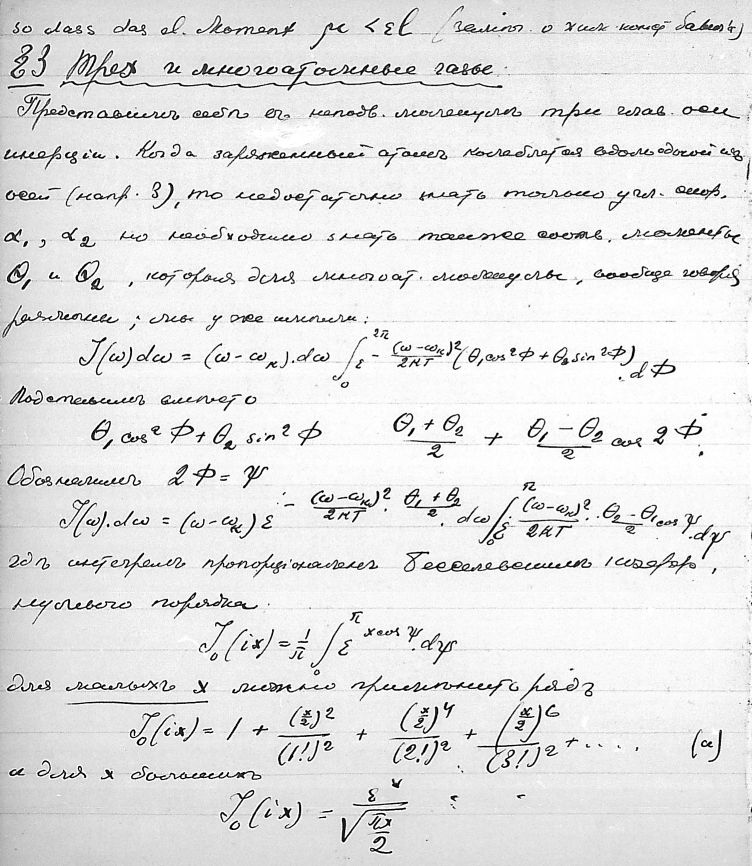 so dass das el. Moment μ < εl
§3 Трех и многоатомные газы.
Представимъ себѣ въ неподв. молекулѣ три глав. оси
инерціи. Когда заряженный атомъ колеблется вдоль одной изъ
осей (напр. 3), то недостаточно знать только угл. скор.
α₁, α₂ но необходимо знать также соотв. моменты
Θ₁ и Θ₂, которые для многоат. молекулы, вообще говоря
различны; мы уже имѣли:
J(ω)dω = (ω-ωₖ).dω ∫₀^{2π} ε^{-(ω-ωₖ)²/2kT (Θ₁cos²Φ+Θ₂sin²Φ)}.dΦ
Подставимъ вмѣсто
Θ₁cos²Φ+Θ₂sin²Φ (Θ₁+Θ₂)/2 + (Θ₁-Θ₂)/2 cos 2Φ.
Обозначимъ 2Φ=Ψ
J(ω).dω = (ω-ωₖ) ε^{-(ω-ωₖ)²/2kT . (Θ₁+Θ₂)/2}. dω ∫₀^π ε^{(ω-ωₖ)²/2kT . (Θ₂-Θ₁)/2 cosψ}.dψ
гдѣ интегралъ пропорціоналенъ Бесселевскимъ
нулевого порядка.
J₀(ix) = 1/π ∫₀^π ε^{x cosψ}.dψ
для малыхъ x можно примѣнить рядъ
J₀(ix) = 1 + (x/2)²/(1!)² + (x/2)⁴/(2!)² + (x/2)⁶/(3!)² + .... (a)
а для x большихъ
J₀(ix) = ε^x/√(πx/2)